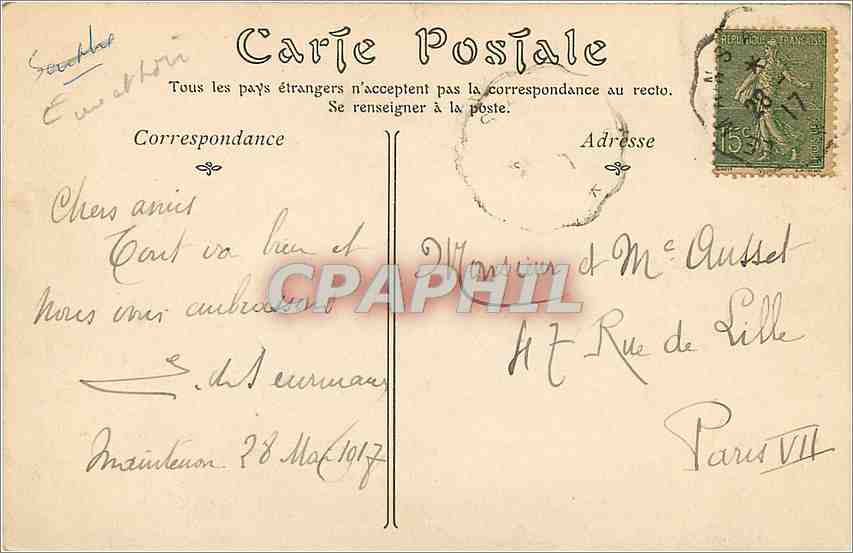 Carte Postale
Tous les pays étrangers n'acceptent pas la correspondance au recto.
Se renseigner à la poste.
Correspondance
Adresse
REPUBLIQUE FRANÇAISE
15c
28
17
Chers amis
Tout va bien et
nous vous embrassons
Maintenon 28 Mai 1917
Monsieur et Me Ausset
47 Rue de Lille
Paris VII
CPAPHIL